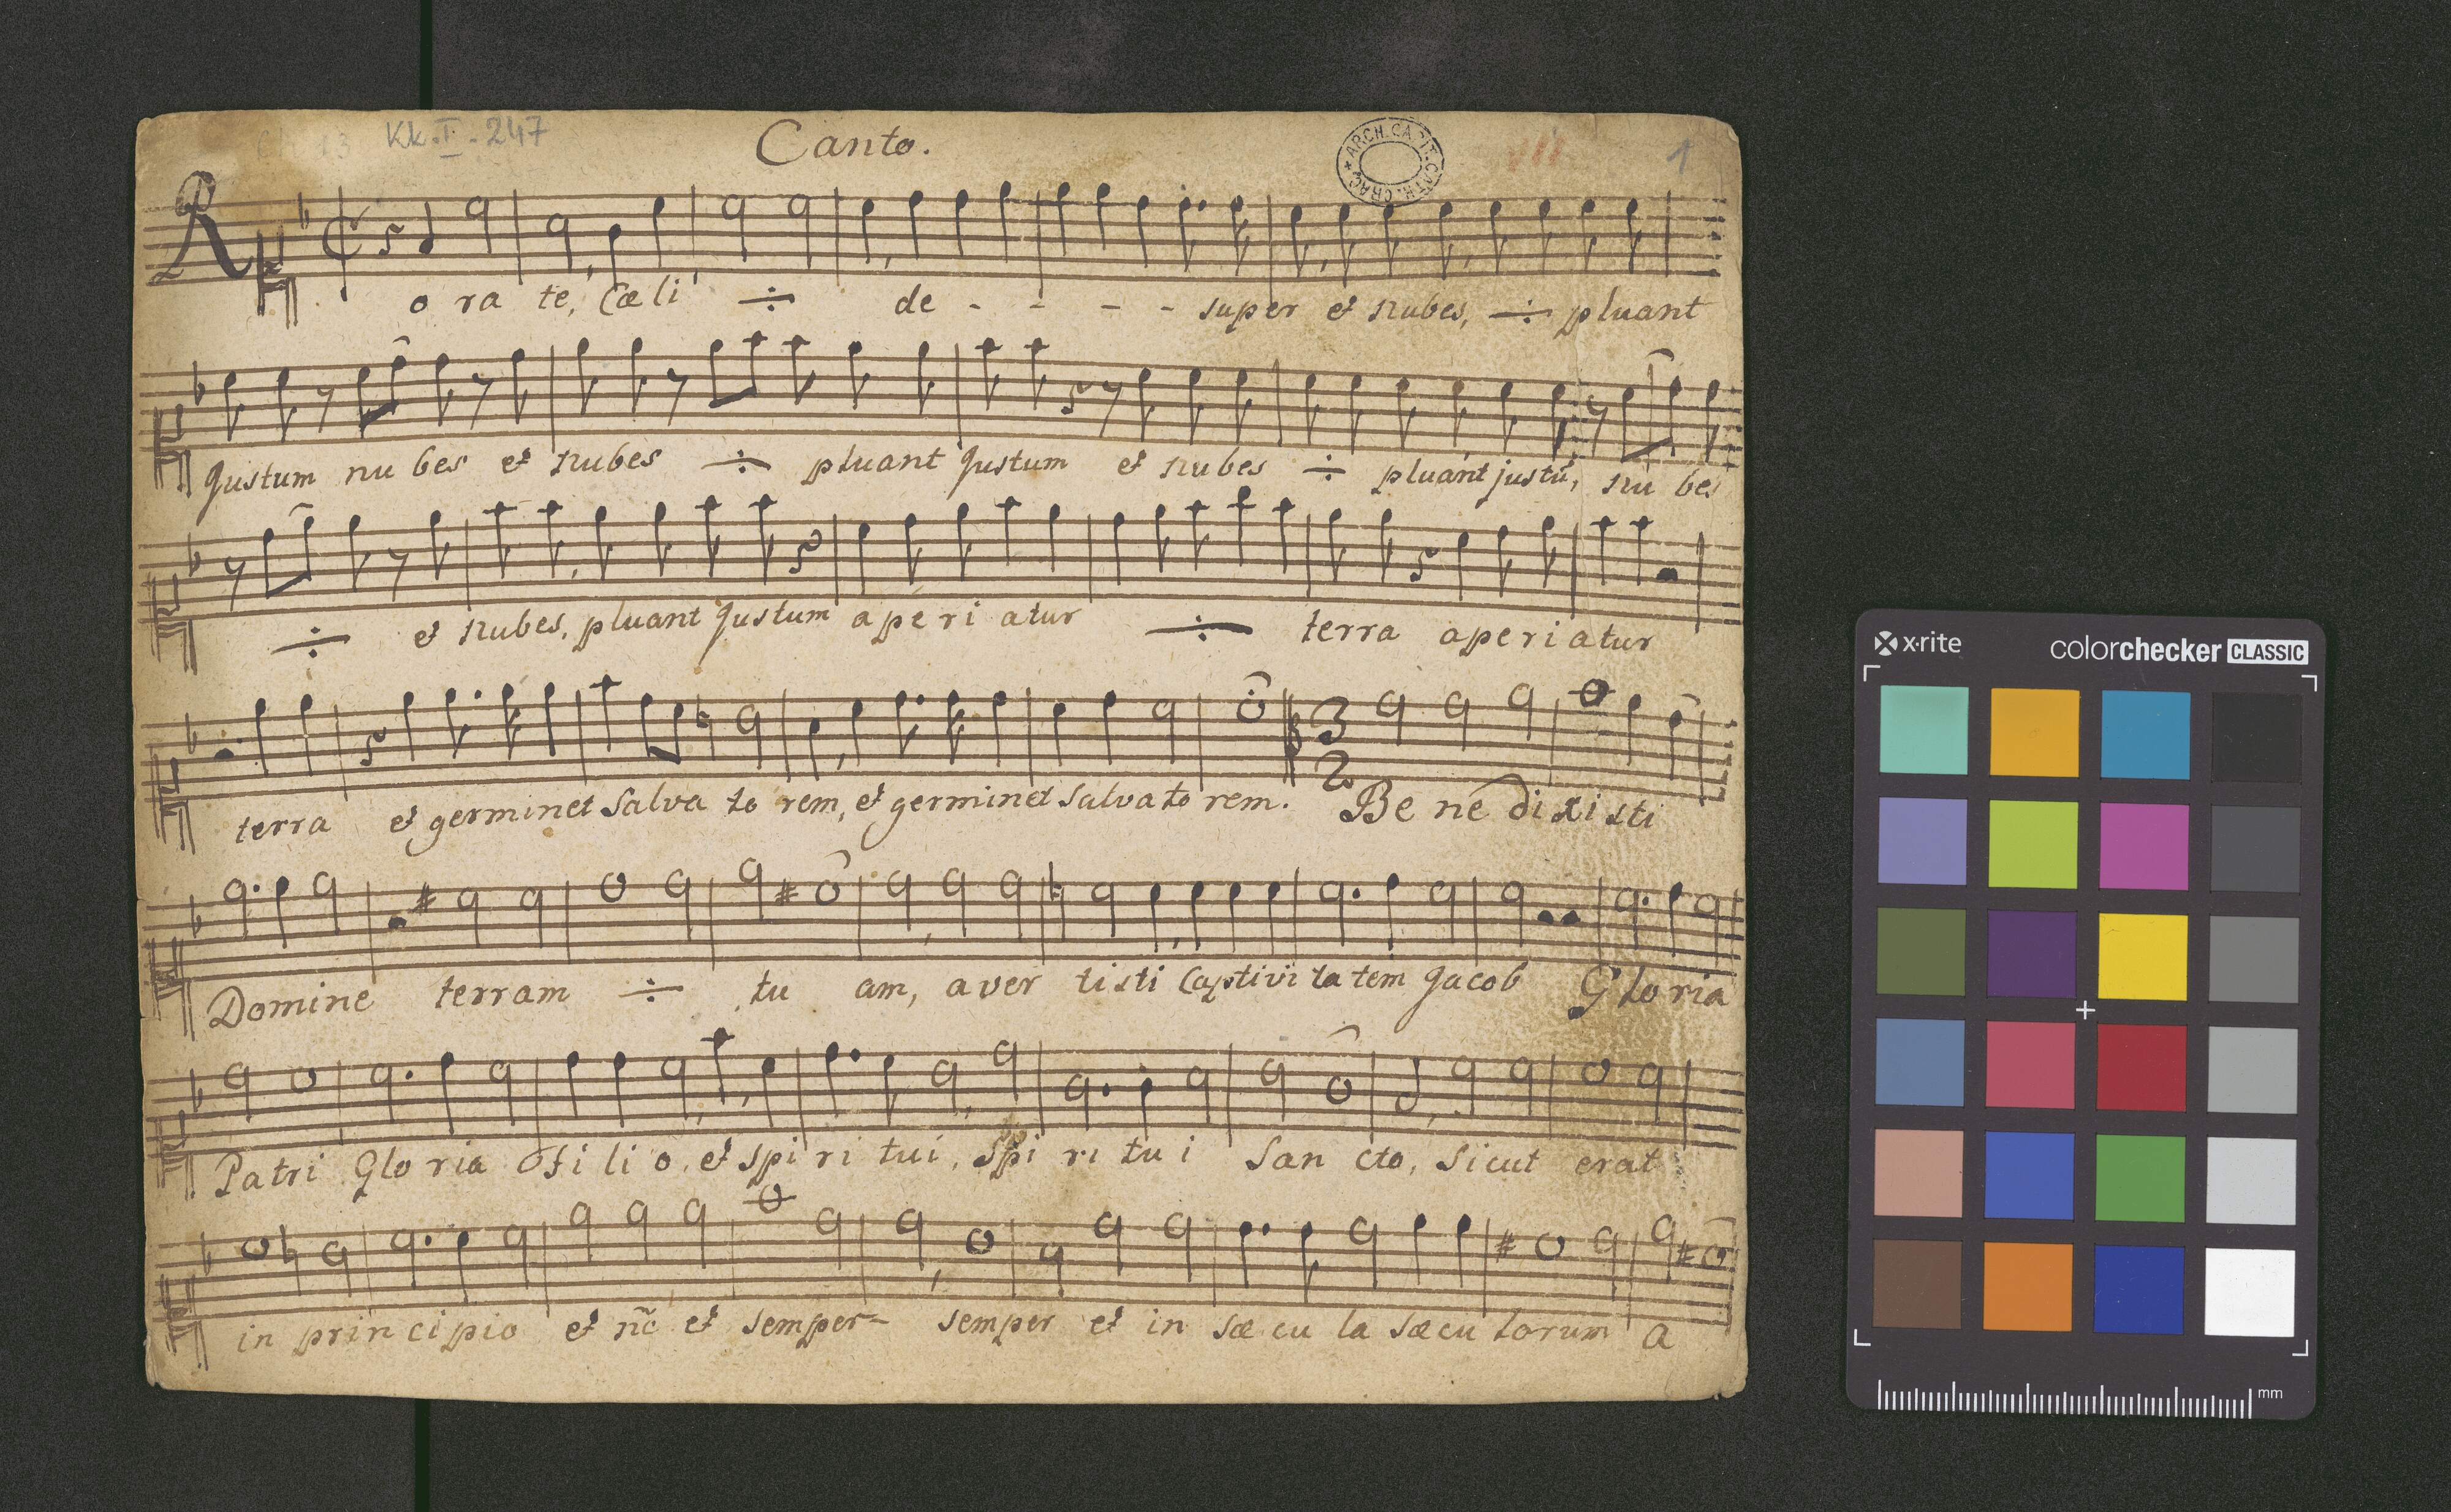 Kk.I.-247
Canto.
ARCH.CAPIT.CATH.CRAC
1
Rorate, Cæli ÷ de - - - - super et nubes, ÷ pluant
Justum nubes et nubes ÷ pluant Justum et nubes ÷ pluant justũ, nubes
÷ et nubes, pluant Justum aperiatur ÷ terra aperiatur
terra et germinet Salvatorem, et germinet Salvatorem. 3 2 Benedixisti
Domine terram ÷ tuam, avertisti Captivitatem Jacob Gloria
Patri Gloria Filio, et spiritui, Spiritui Sancto, Sicut erat
in principio et nc̃ et semper= semper et in sæcula sæculorum a
x·rite
colorchecker CLASSIC
mm